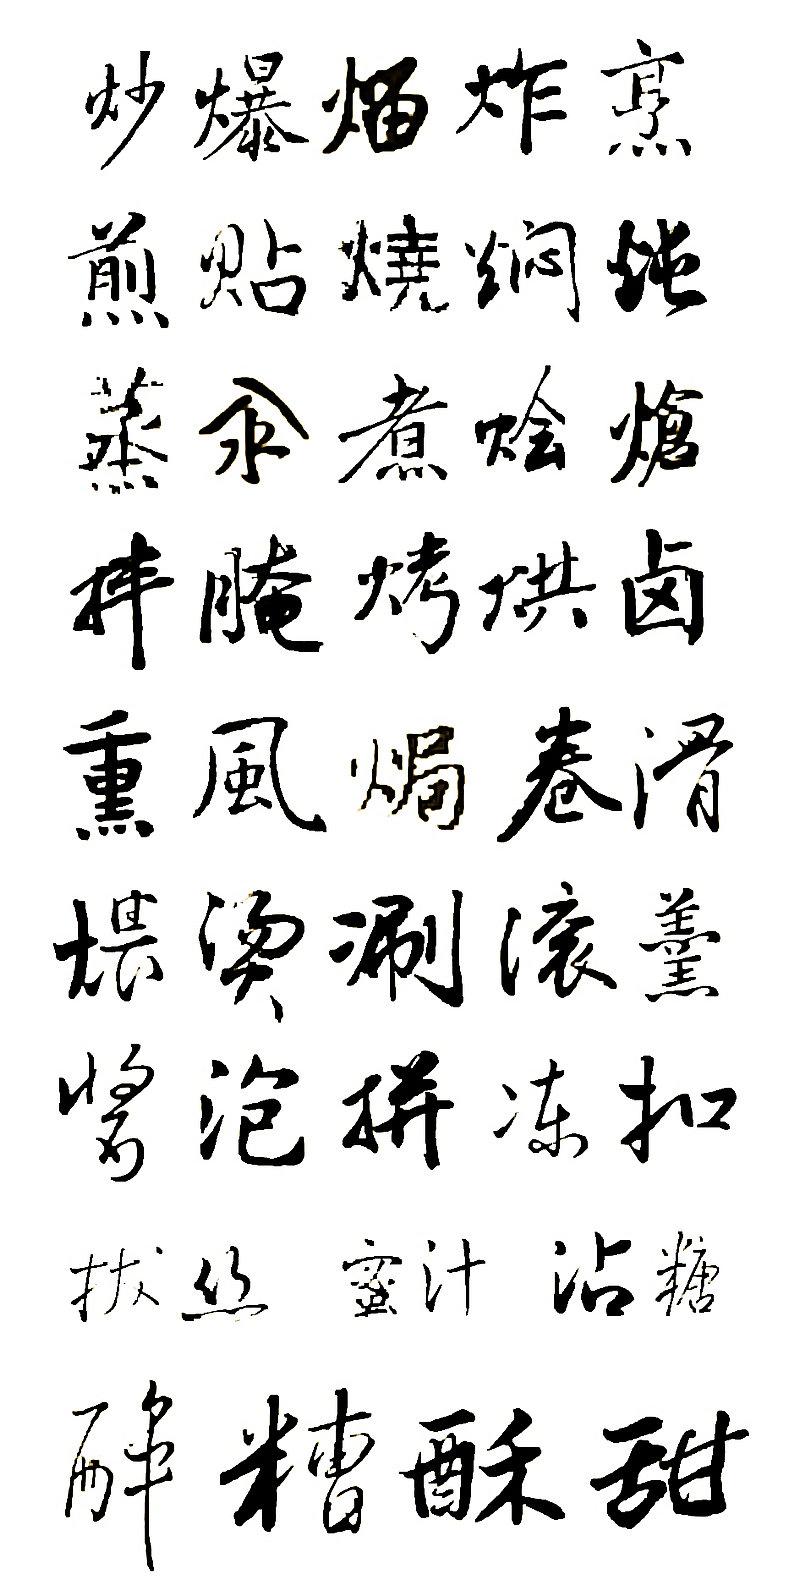 炒爆熘炸烹
煎貼燒焖炖
蒸汆煮烩熗
拌腌烤烘卤
熏風焗卷滑
煨燙涮滚羹
酱泡拼冻扣
拔丝 蜜汁 沾糖
醉糟酥甜